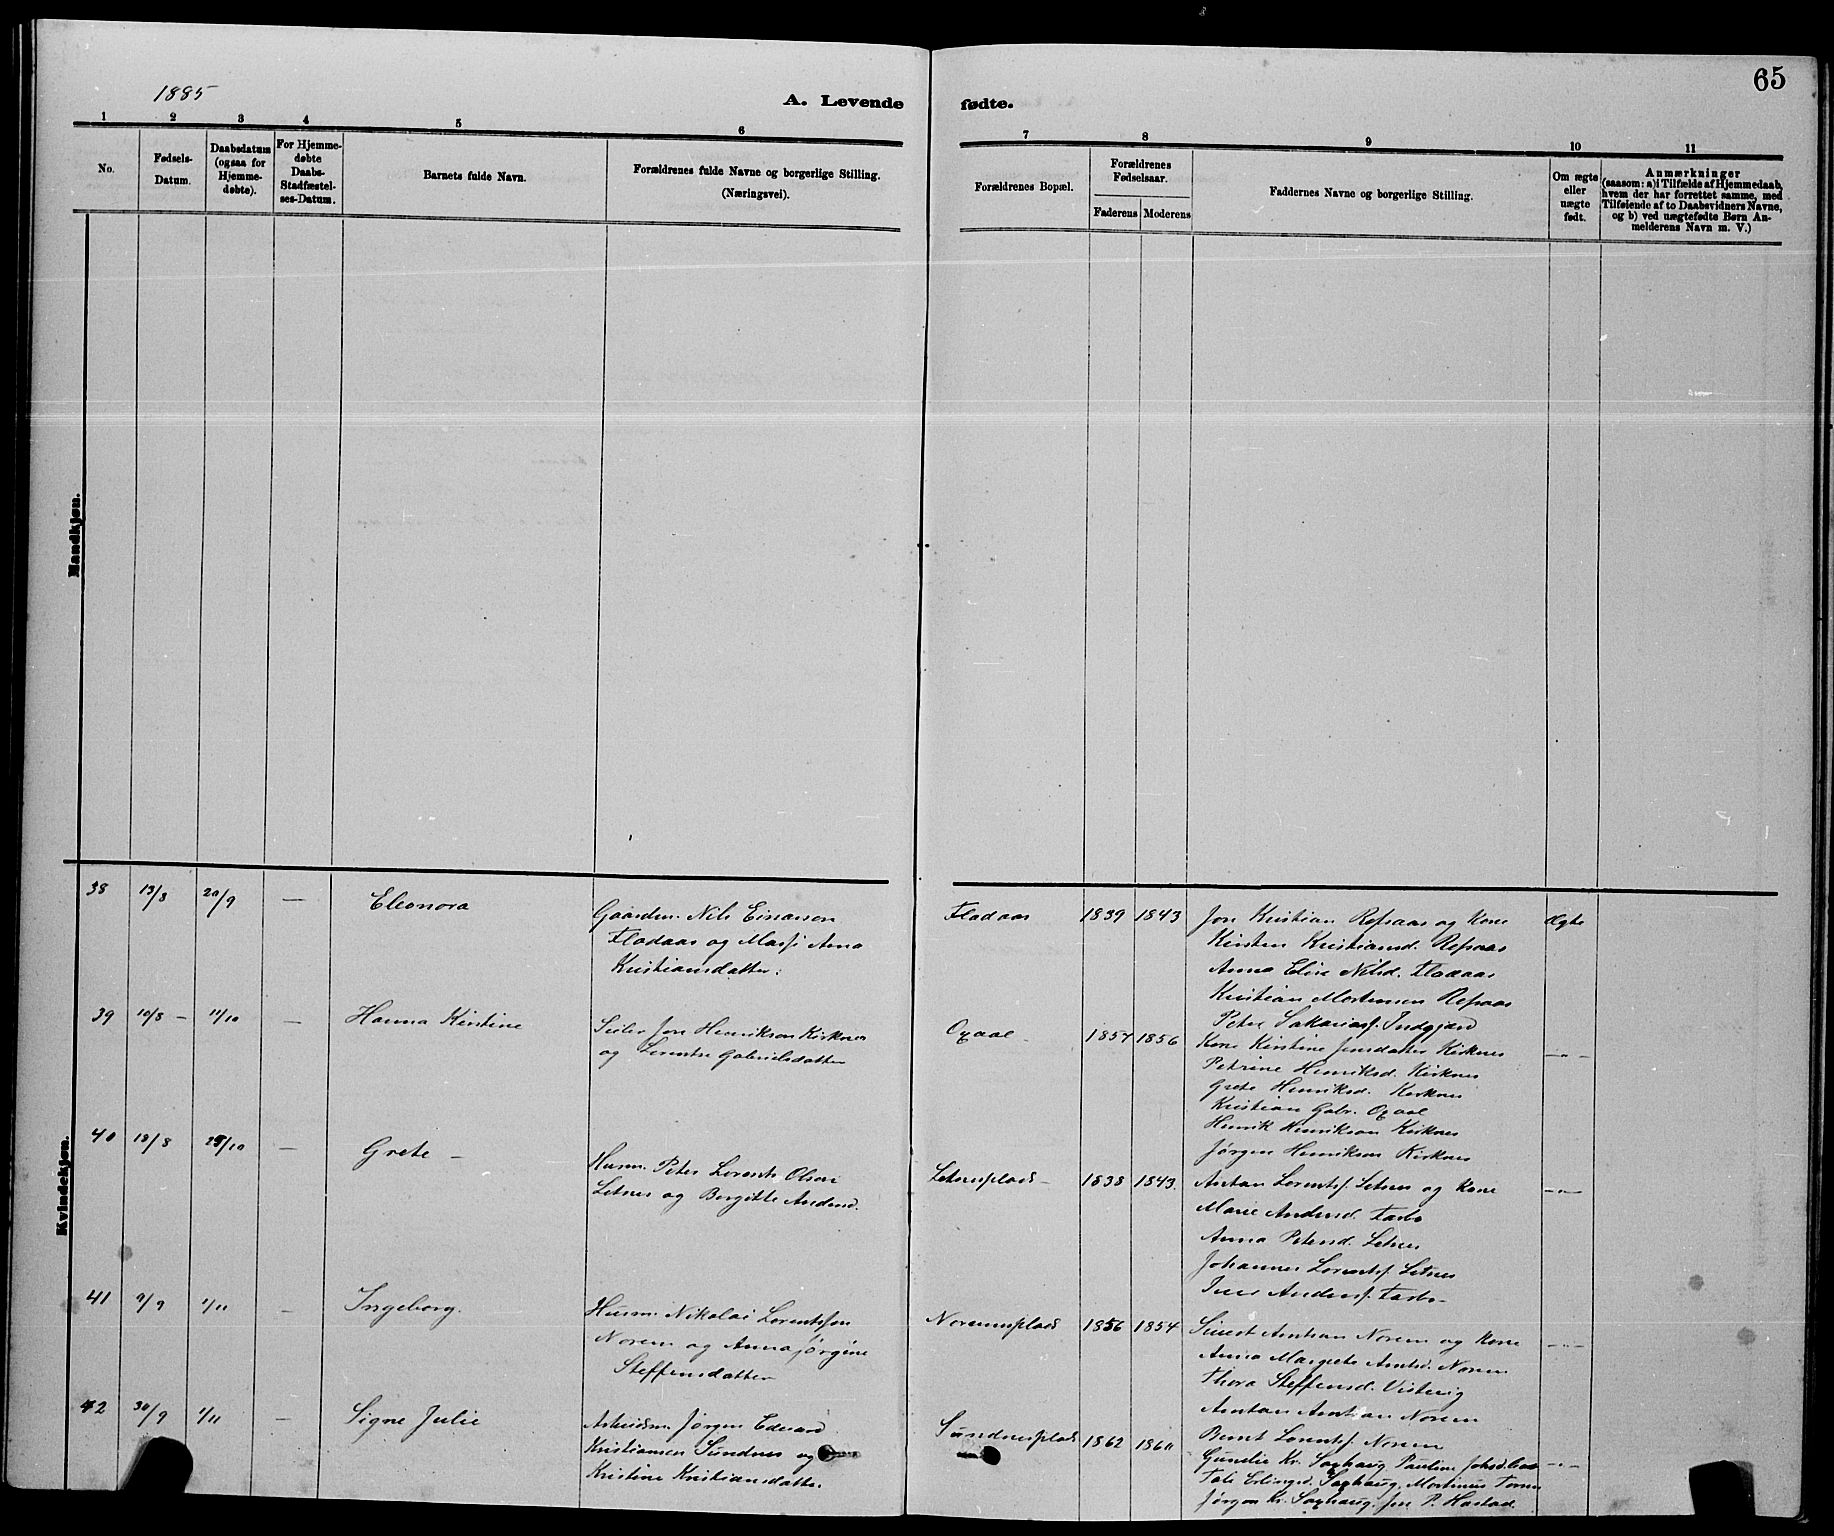 65
1885
A. Levende
fødte.
1 2 3 4 5 6
7 8 9 10 11
No.
Fødsels-
Datum.
Daabsdatum
(ogsaa for
Hjemme-
døbte).
For Hjemme-
døbte
Daabs-
Stadfæstel-
ses-Datum.
Barnets fulde Navn.
Forældrenes fulde Navne og borgerlige Stilling.
(Næringsvei).
Forældrenes Bopæl.
Forældrenes
Fødselsaar.
Faderens
Moderens
Faddernes Navne og borgerlige Stilling.
Om ægte
eller
uægte
født.
Anmærkninger
(saasom: a) i Tilfælde af Hjemmedaab,
hvem der har forrettet samme, med
Tilføiende af to Daabsvidners Navne,
og b) ved uægtefødte Børn An-
melderens Navn m. V.)
Mandkjøn.
Kvindekjøn.
38 13/8 20/9 — Eleonora
Gaardm. Nils Einarsen
Fladaas og Anna
Kristiansdatter.
Fladaas 1839 1843
Jon Kristian Refsaas og Kone
Kirsten Kristiansd. Refsaas
Anna Elise Nilsd. Fladaas
Kristian Mortensen Refsaas
Peter Sakariasf. Indgjærd
Ægte
39 10/8 — 11/10 — Hanna Kirstine
Jon Henriksen Kirknes
og Gabrielsdatter
Oxaal 1854 1856
Kone Kirstine Jensdatter Kirknes
Petrine Henriksd. Kirknes
Grete Henriksd. Kirknes
Kristian Gabr. Oxaal
Henrik Henriksen Kirknes
Jørgen Henriksen Kirknes
—"—
40 18/8 25/10 — Grete —
Husm. Peter Lorents Olsen
Letnes og Borgitte Andersd.
Letnesplads — 1838 1843.
Lorentsf. Letnes og Kone
Marie Andersd. Tarbo
Anna Petersd. Letnes
Johannes Lorentsf. Letnes
Jens Andersf. Tarbo
—"—
41 9/9 1/11 — Ingeborg.
Husm. Nikolai Lorentssen
Norem og Anna Jørgine
Steffensdatter
Noremsplads 1856 1854
Sivert Norem og Kone
Anna Margrete Norem
Thora Steffensd. Visterig
Norem
Bernt Lorentsf. Norem
—"—
42 30/9 1/11 — Signe Julie
Arbeidsm. Jørgen Edvard
Kristiansen Sundnes og
Kristine Kristiansdatter.
Sundnesplads 1862 1860
Gunelie Kr. Saghaug, Pauline
Erlingsd. Saghaug, Mortinus
Jørgen Kr. Saghaug, Jon P. Hastad.
—"—